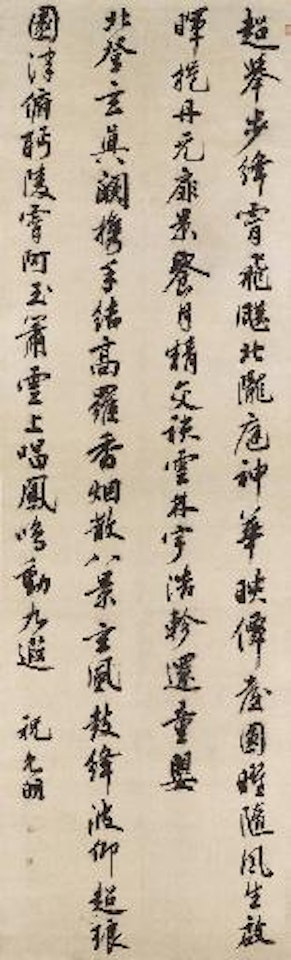 超舉步絳霄飛飈北隴庭神華映僊臺圓曜隨風生啟
暉挹丹元扉景餐月精交袂雲林宇浩軫還童嬰
北登玄真闕携手結高羅香烟散八景玄風鼓絳波仰超琅
園津俯眄陵霄阿玉簫雲上唱鳳鳴動九遐
祝允明